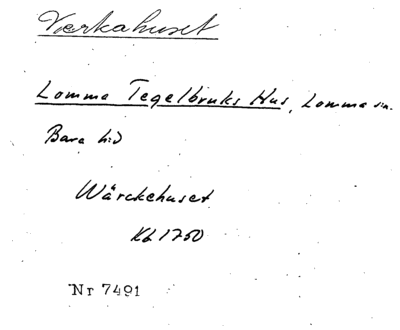 Værkahuset
Lomma Tegelbruks Hus, Lomma sn.
Bara hd
Wärckehuset
Kb 1750
Nr 7491